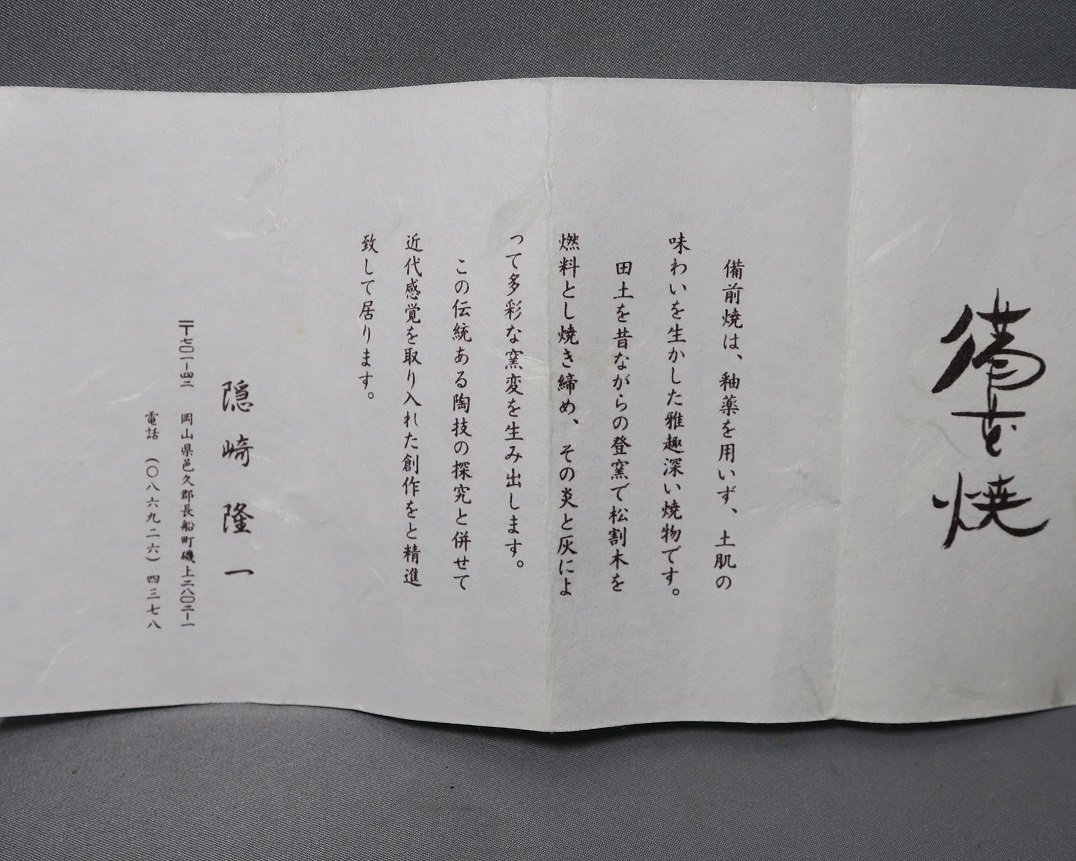 備前焼
備前焼は、釉薬を用いず、土肌の
味わいを生かした雅趣深い焼物です。
田土を昔ながらの登窯で松割木を
燃料とし焼き締め、その炎と灰によ
って多彩な窯変を生み出します。
この伝統ある陶技の探究と併せて
近代感覚を取り入れた創作をと精進
致して居ります。
隠崎隆一
〒七〇一-四二 岡山県邑久郡長船町磯上二八〇二-一
電話 (〇八六九二六)四三七八